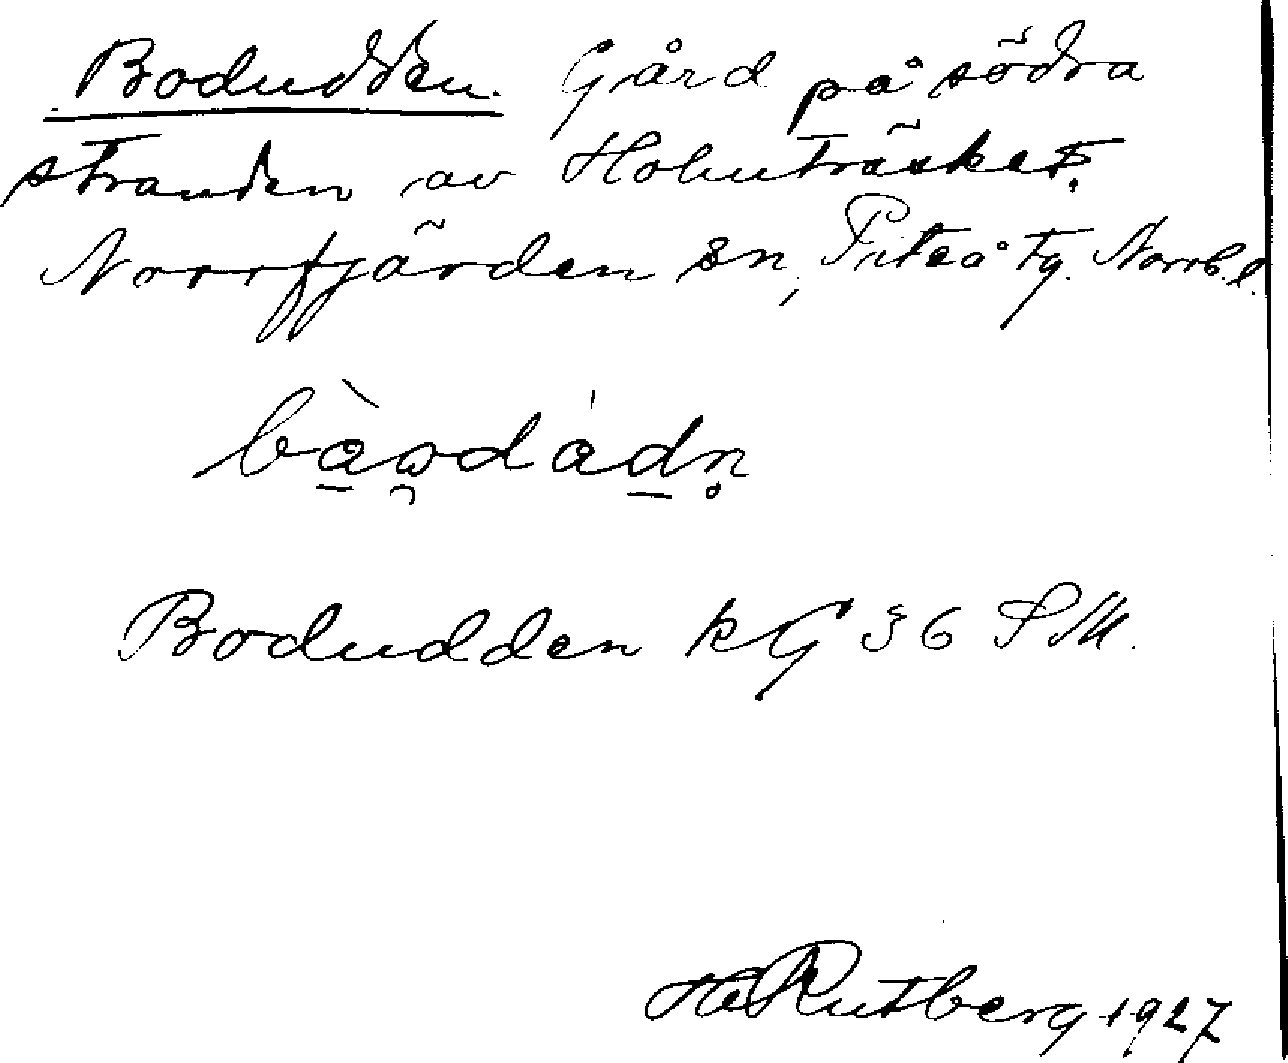 Bodudden. Gård på södra
stranden av Holmträsket.
Norrfjärden sn, Piteå tg. Norrb. l.
Bodudden kG 36 SM.
Rutberg 1927